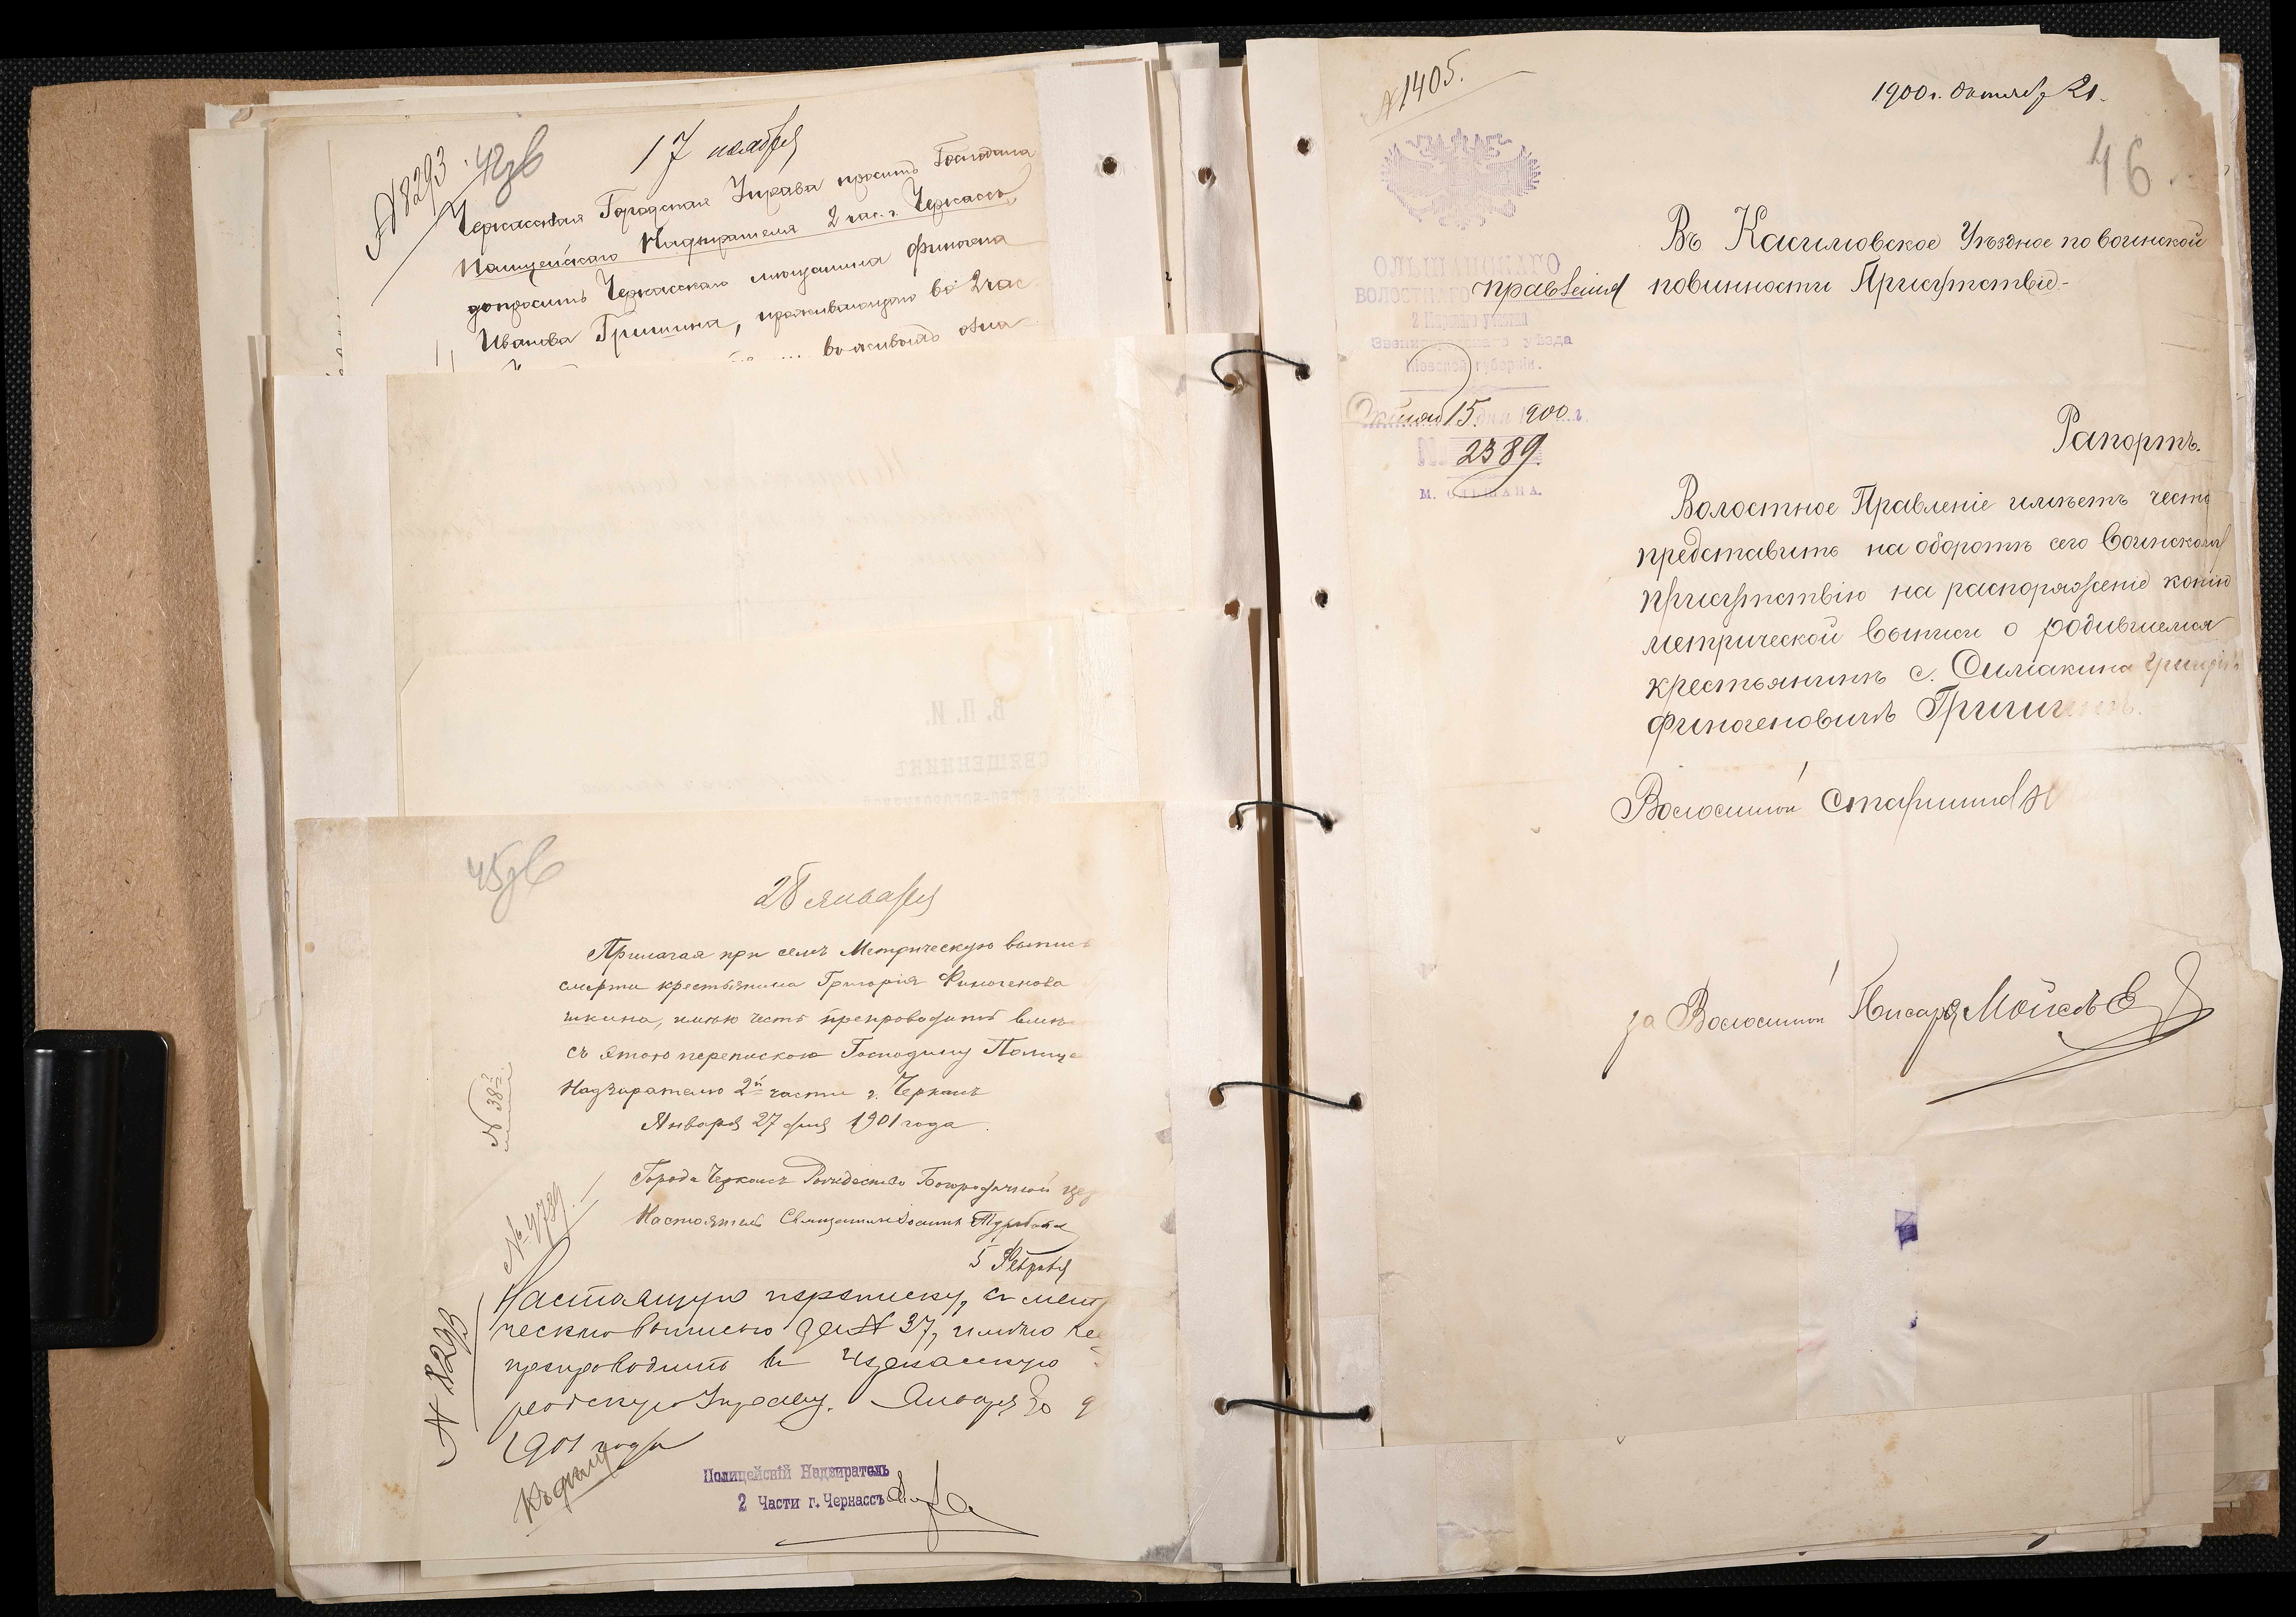 № 8293
42об
17 ноября
Черкасская Городская Управа просит Господина
Полицейскаго Надзирателя 2 час. г. Черкассъ
допросить Черкасскаго мещанина Финогена
Иванова Гришина, проживающаго во 2 час
В. П. И.
СВЯЩЕННИКЪ
45об
28 января
Прилагая при семъ Метрическую выпись
смерти крестьянина Григорія Финогенова
шкина, имею честь препроводить вмѣ
съ этою перепискою Господину Полице
Надзирателю 2й части г. Черкасъ
Января 27 дня 1901 года.
№ 38
Города Черкасъ Рождество Богородичной цер
Настоятель Священник
№ 4789
5 Февраля
№ 8293
Настоящую переписку, съ метр
ческою выписью за № 37, имѣю че
препроводить въ Черкасскую
родскую Управу. Января 30
1901 года
Къ дѣлу
Полицейскій Надзиратель
2 Части г. Черкассъ
№ 1405.
1900 г. Октября 21.
46.
Въ Касимовское Уѣздное по воинской
повинности Присутствіе
ОЛЬШАНСКАГО
ВОЛОСТНАГО правленія
Звенигородскаго уѣзда
Кіевской губерніи.
Октября 15 дня 1900 г.
№ 2389.
М. ОЛЬШАНА.
Рапортъ.
Волостное Правленіе имѣетъ честь
представить на оборотѣ сего Воинскому
присутствію на распоряженіе копію
метрической выписи о родившемся
крестьянинѣ с. Симакина
Финогеновичѣ Гришинѣ.
Волостной Старшина
за Волостной Писаря